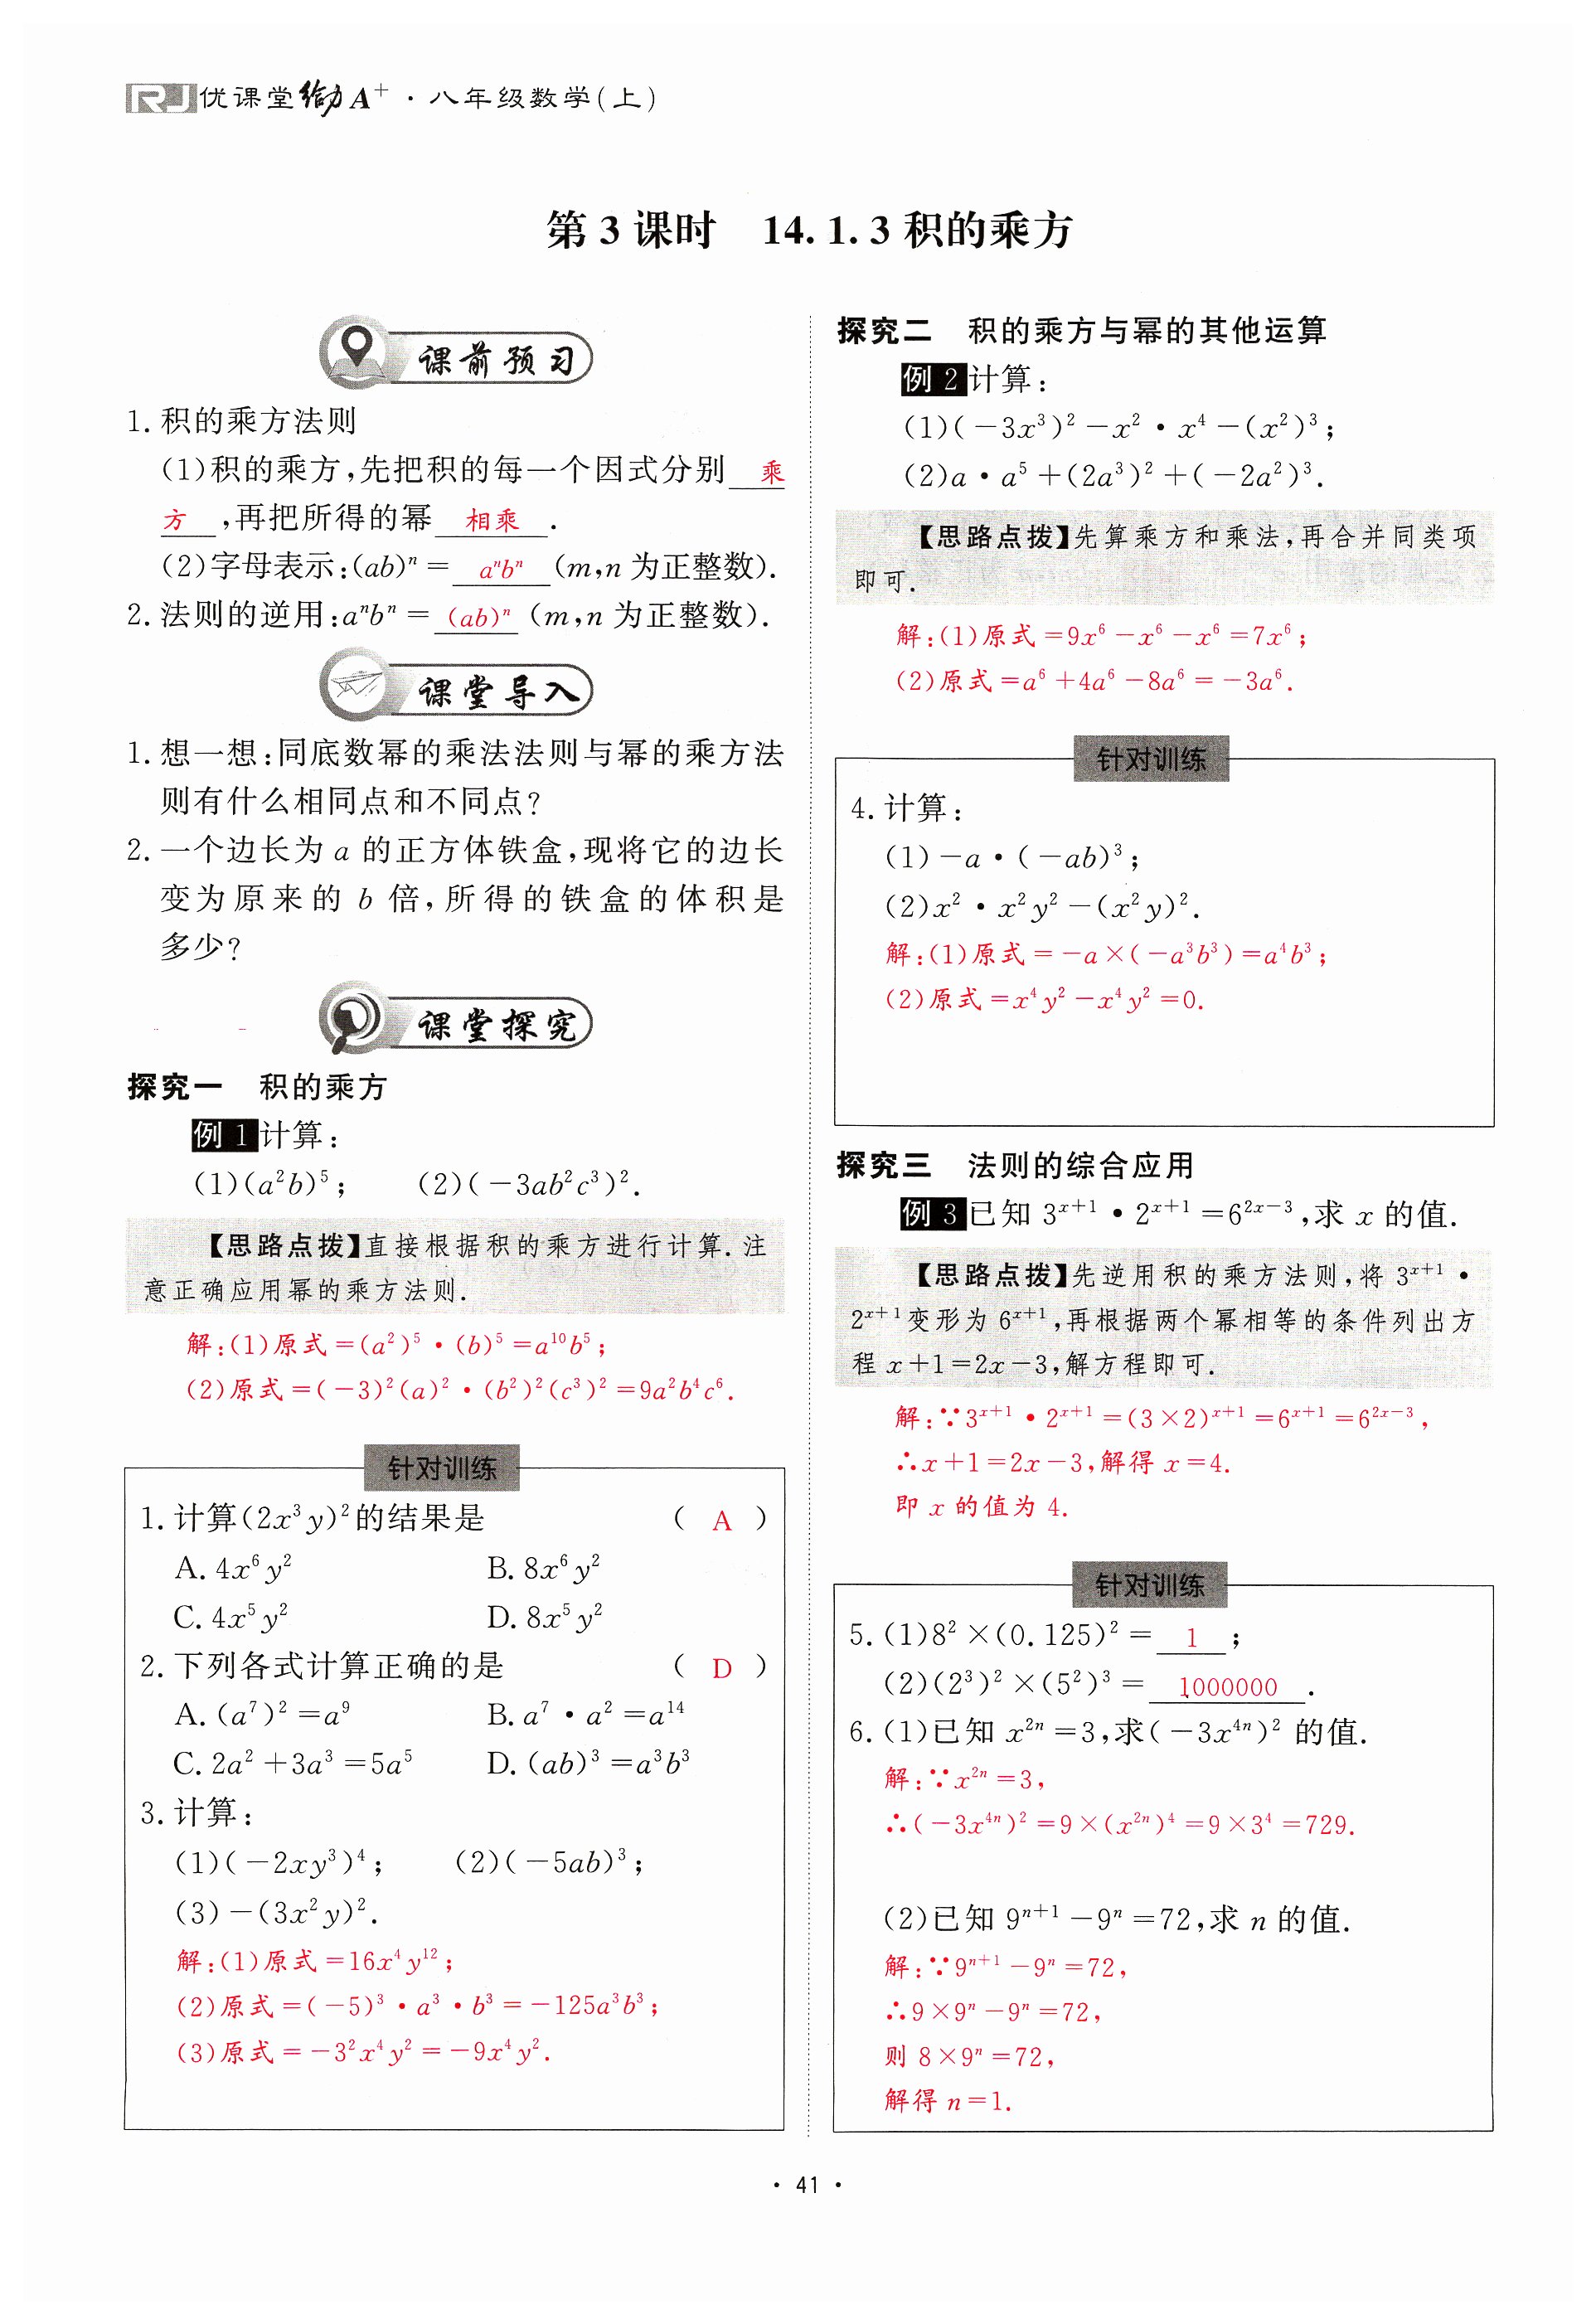 RJ优课堂给力A⁺·八年级数学(上)
第3课时 14.1.3积的乘方
课前预习
1.积的乘方法则
(1)积的乘方,先把积的每一个因式分别 乘
方 ,再把所得的幂 相乘 .
(2)字母表示:(ab)ⁿ= aⁿbⁿ (m,n为正整数).
2.法则的逆用:aⁿbⁿ= (ab)ⁿ (m,n为正整数).
课堂导入
1.想一想:同底数幂的乘法法则与幂的乘方法
则有什么相同点和不同点?
2.一个边长为a的正方体铁盒,现将它的边长
变为原来的b倍,所得的铁盒的体积是
多少?
课堂探究
探究一 积的乘方
例1 计算:
(1)(a²b)⁵; (2)(-3ab²c³)².
【思路点拨】直接根据积的乘方进行计算.注
意正确应用幂的乘方法则.
解:(1)原式=(a²)⁵·(b)⁵=a¹⁰b⁵;
(2)原式=(-3)²(a)²·(b²)²(c³)²=9a²b⁴c⁶.
针对训练
1.计算(2x³y)²的结果是 ( A )
A.4x⁶y² B.8x⁶y²
C.4x⁵y² D.8x⁵y²
2.下列各式计算正确的是 ( D )
A.(a⁷)²=a⁹ B.a⁷·a²=a¹⁴
C.2a²+3a³=5a⁵ D.(ab)³=a³b³
3.计算:
(1)(-2xy³)⁴; (2)(-5ab)³;
(3)-(3x²y)².
解:(1)原式=16x⁴y¹²;
(2)原式=(-5)³·a³·b³=-125a³b³;
(3)原式=-3²x⁴y²=-9x⁴y².
探究二 积的乘方与幂的其他运算
例2 计算:
(1)(-3x³)²-x²·x⁴-(x²)³;
(2)a·a⁵+(2a³)²+(-2a²)³.
【思路点拨】先算乘方和乘法,再合并同类项
即可.
解:(1)原式=9x⁶-x⁶-x⁶=7x⁶;
(2)原式=a⁶+4a⁶-8a⁶=-3a⁶.
针对训练
4.计算:
(1)-a·(-ab)³;
(2)x²·x²y²-(x²y)².
解:(1)原式=-a×(-a³b³)=a⁴b³;
(2)原式=x⁴y²-x⁴y²=0.
探究三 法则的综合应用
例3 已知3ˣ⁺¹·2ˣ⁺¹=6²ˣ⁻³,求x的值.
【思路点拨】先逆用积的乘方法则,将3ˣ⁺¹·
2ˣ⁺¹变形为6ˣ⁺¹,再根据两个幂相等的条件列出方
程x+1=2x-3,解方程即可.
解:∵3ˣ⁺¹·2ˣ⁺¹=(3×2)ˣ⁺¹=6ˣ⁺¹=6²ˣ⁻³,
∴x+1=2x-3,解得x=4.
即x的值为4.
针对训练
5.(1)8²×(0.125)²= 1 ;
(2)(2³)²×(5²)³= 1000000 .
6.(1)已知x²ⁿ=3,求(-3x⁴ⁿ)²的值.
解:∵x²ⁿ=3,
∴(-3x⁴ⁿ)²=9×(x²ⁿ)⁴=9×3⁴=729.
(2)已知9ⁿ⁺¹-9ⁿ=72,求n的值.
解:∵9ⁿ⁺¹-9ⁿ=72,
∴9×9ⁿ-9ⁿ=72,
则8×9ⁿ=72,
解得n=1.
·41·